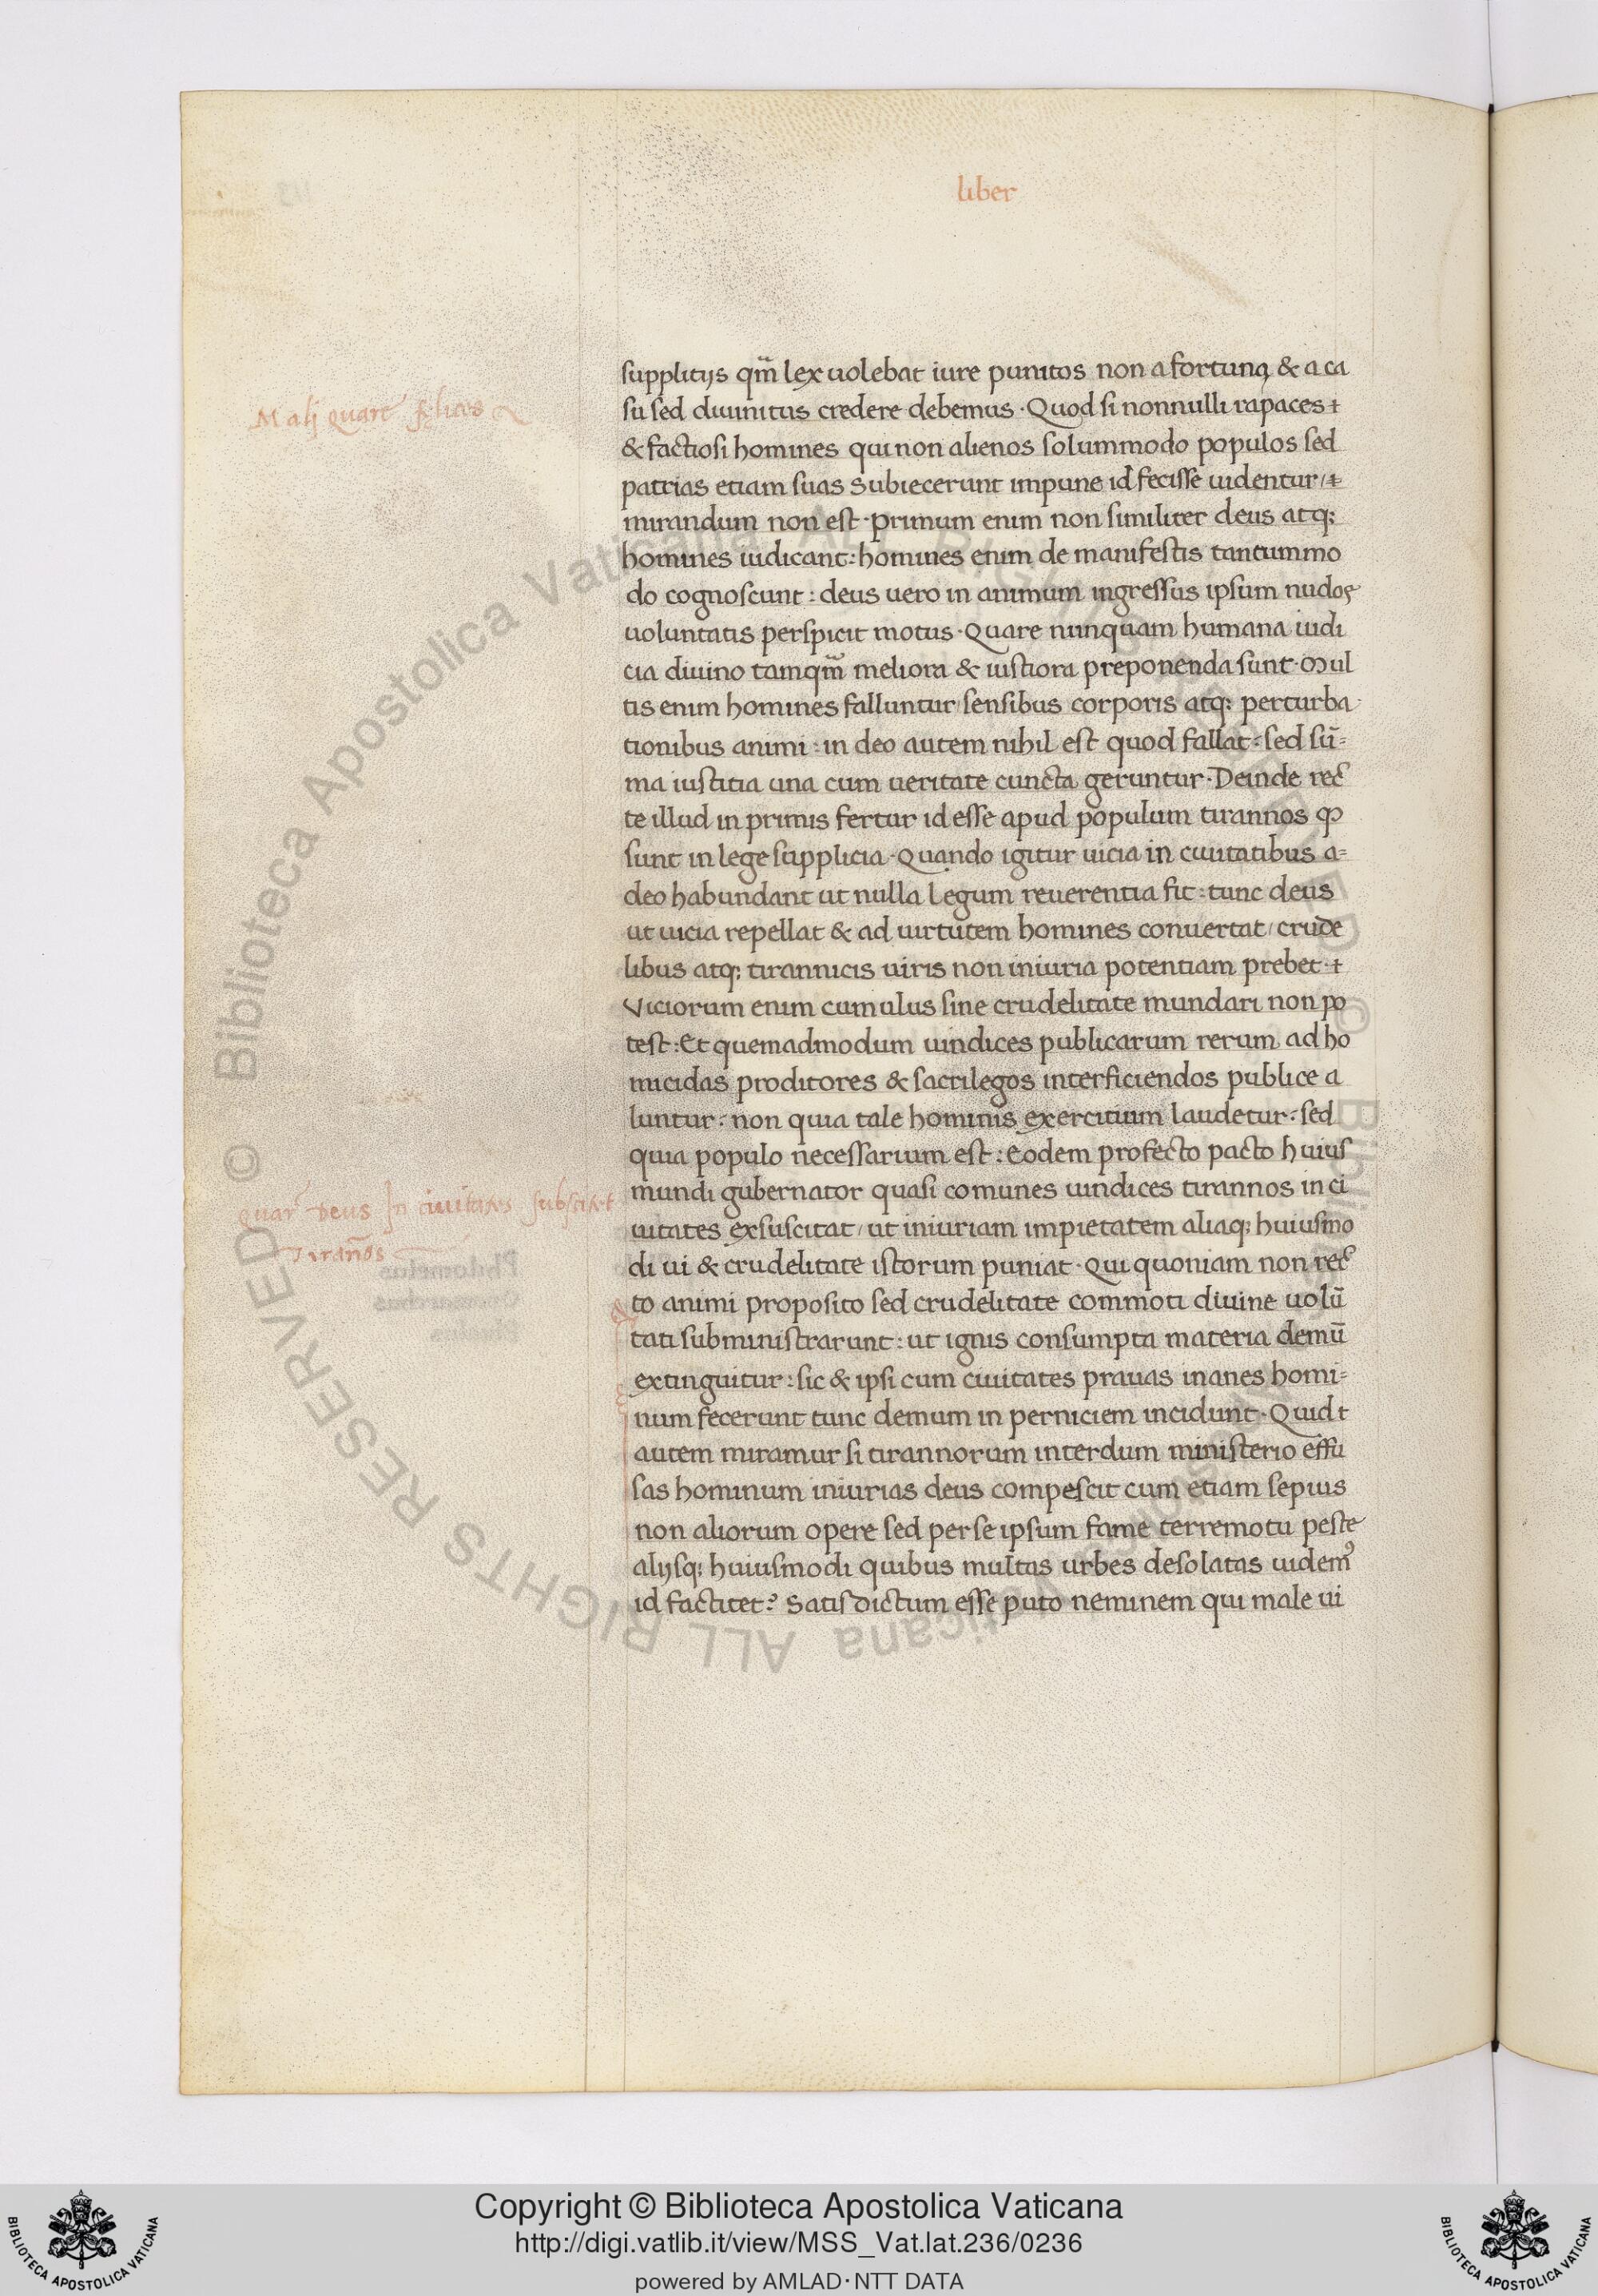 liber
supplitijs qm̄ lex uolebat iure punitos non a fortuna & a ca
su sed diuinitus credere debemus · Quod si nonnulli rapaces
& factiosi homines qui non alienos solummodo populos sed
patrias etiam suas subiecerunt impune id fecisse uidentur /
mirandum non est · primum enim non similiter deus atq;
homines iudicant : homines enim de manifestis tantummo
do cognoscunt : deus uero in animum ingressus ipsum nudos
uoluntatis perspicit motus · Quare nunquam humana iudi
cia diuino tamqm̄ meliora & iustiora preponenda sunt · Mul
tis enim homines falluntur sensibus corporis atq; perturba
tionibus animi : in deo autem nihil est quod fallat : sed sū=
ma iustitia una cum ueritate cuncta geruntur · Deinde rec
te illud in primis fertur id esse apud populum tirannos qͻ
sunt in lege supplicia · Quando igitur uicia in ciuitatibus a=
deo habundant ut nulla legum reuerentia sit : tunc deus
ut uicia repellat & ad uirtutem homines conuertat / crude
libus atq; tirannicis uiris non iniuria potentiam prebet ·
Viciorum enim cumulus sine crudelitate mundari non po
test : Et quemadmodum uindices publicarum rerum ad ho
micidas proditores & sacrilegos interficiendos publice a
luntur : non quia tale hominis exercitium laudetur : sed
quia populo necessarium est : Eodem profecto pacto huius
mundi gubernator quasi comunes uindices tirannos in ci
uitates exsuscitat / ut iniuriam impietatem aliaq; huiusmo
di ui & crudelitate istorum puniat · Qui quoniam non rec
to animi proposito sed crudelitate commoti diuine uolū
tati subministrarunt : ut ignis consumpta materia demū
extinguitur : sic & ipsi cum ciuitates prauas inanes homi=
num fecerunt tunc demum in perniciem incidunt · Quid
autem miramur si tirannorum interdum ministerio effu
sas hominum iniurias deus compescit cum etiam sepius
non aliorum opere sed per se ipsum fame terremotu peste
alijsq; huiusmodi quibus multas urbes desolatas uidem᾽
id factitet? Satis dictum esse puto neminem qui male ui
Malj quare felices
quar̄ Deus In ciuitates subscitet
Tirān̄os
© Biblioteca Apostolica Vaticana ALL RIGHTS RESERVED
Copyright © Biblioteca Apostolica Vaticana
http://digi.vatlib.it/view/MSS_Vat.lat.236/0236
powered by AMLAD·NTT DATA
BIBLIOTECA APOSTOLICA VATICANA
BIBLIOTECA APOSTOLICA VATICANA